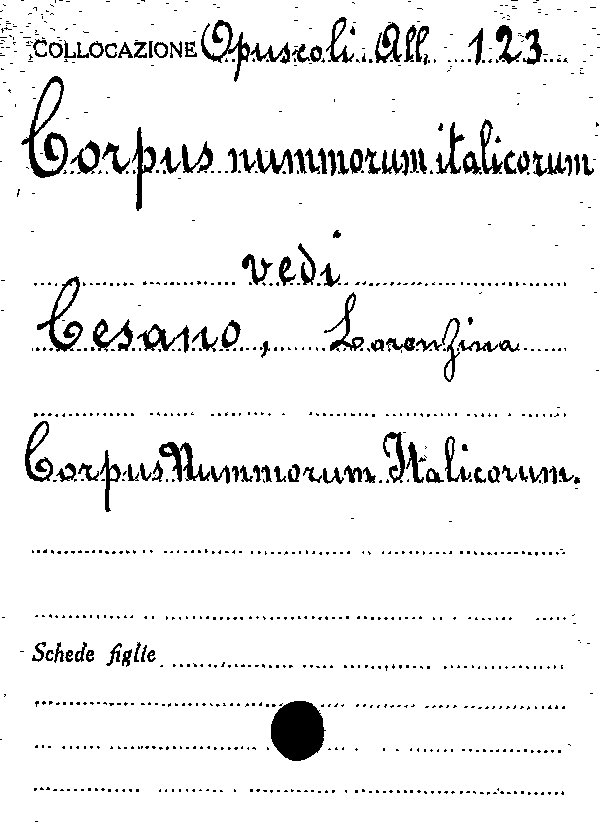 COLLOCAZIONE Opuscoli All. 123
Corpus nummorum italicorum
vedi
Cesano, Lorenzina
Corpus Nummorum Italicorum.
Schede figlie